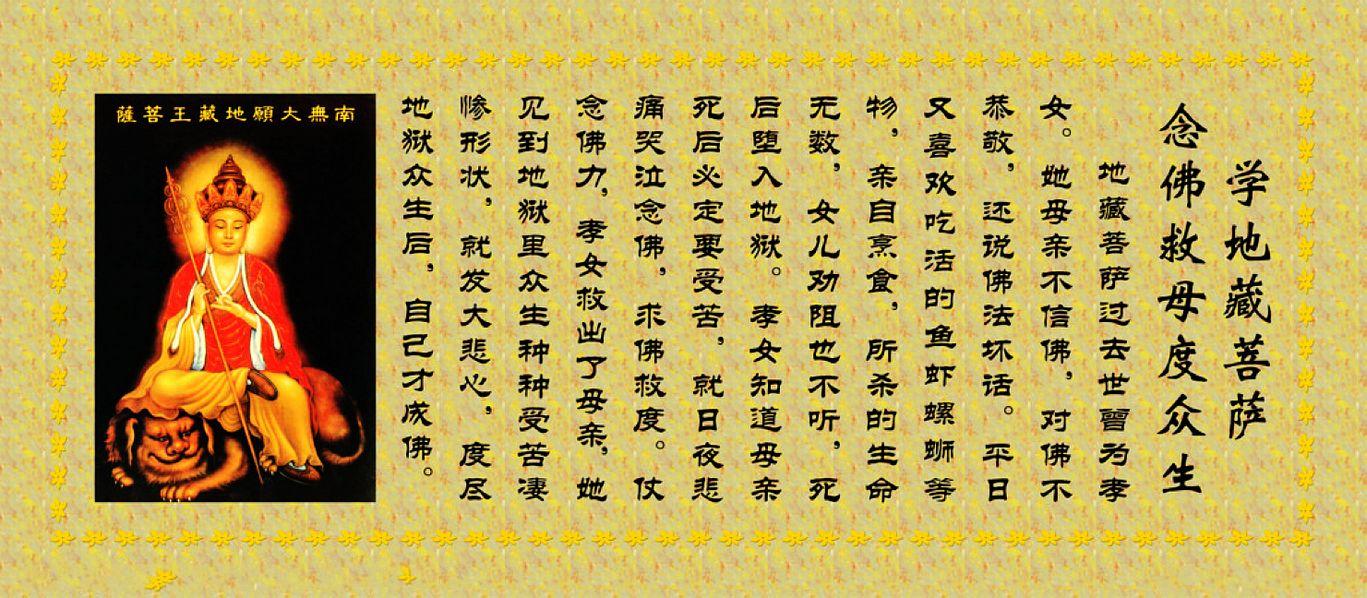 学地藏菩萨
念佛救母度众生
地藏菩萨过去世曾为孝
女。她母亲不信佛，对佛不
恭敬，还说佛法坏话。平日
又喜欢吃活的鱼虾螺蛳等
物，亲自烹食，所杀的生命
无数，女儿劝阻也不听，死
后堕入地狱。孝女知道母亲
死后必定要受苦，就日夜悲
痛哭泣念佛，求佛救度。仗
念佛力，孝女救出了母亲，她
见到地狱里众生种种受苦凄
惨形状，就发大悲心，度尽
地狱众生后，自己才成佛。
南無大願地藏王菩薩